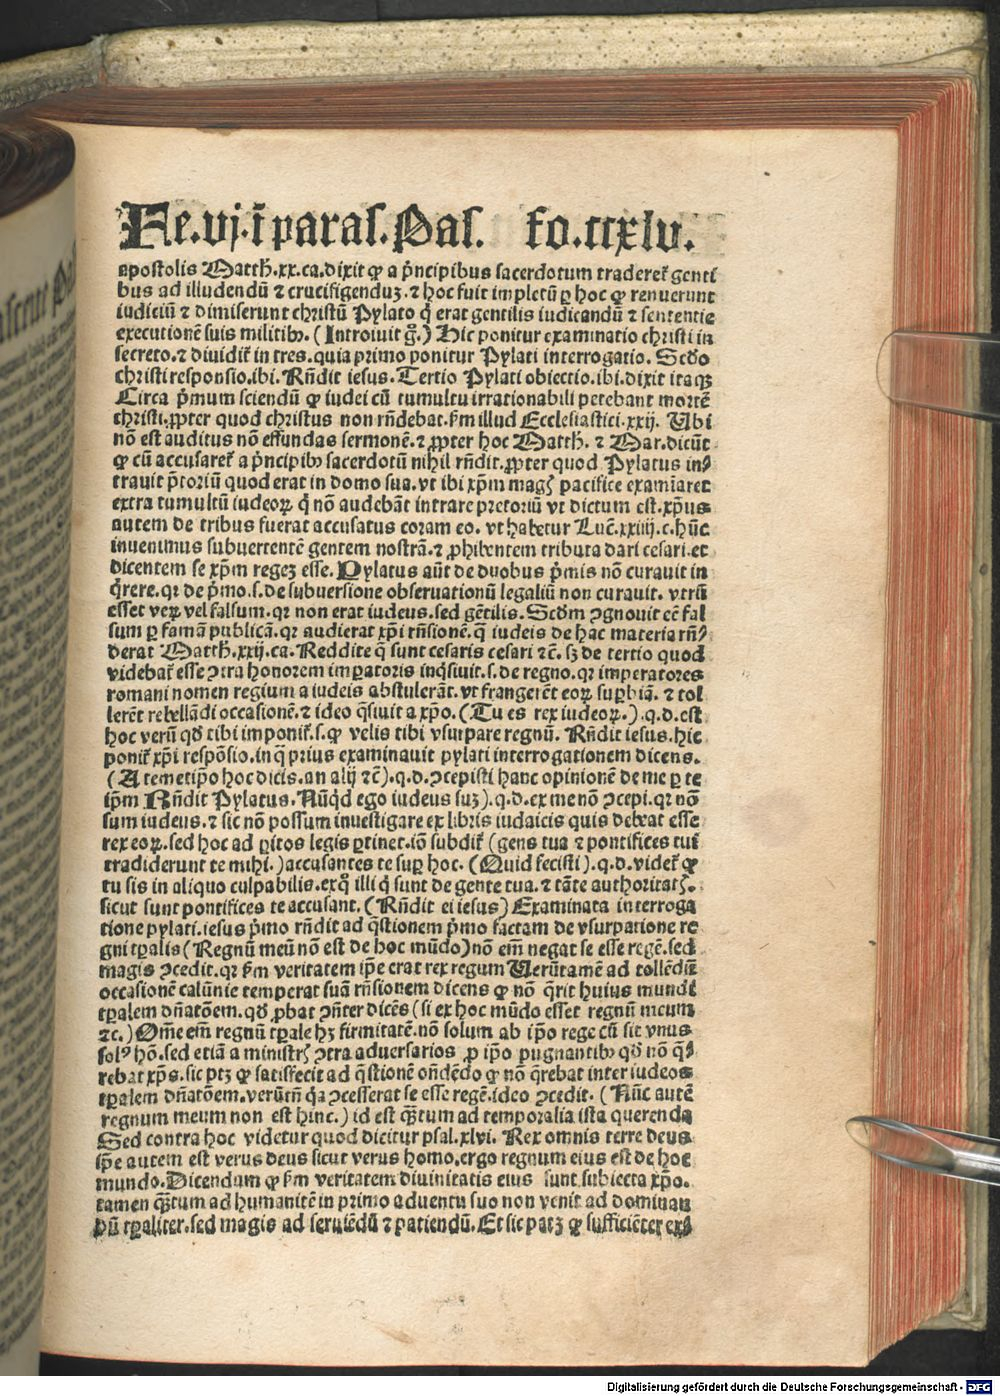 Fe.vj.ī paras.Pas. fo.ccxlv.
apostolis Matth̄.xx.ca.dixit ꝙ a pͥncipibus sacerdotum traderet᷑ genti
bus ad illudendū ⁊ crucifigenduꝫ.⁊ hoc fuit impletū ꝑ hoc ꝙ renuerunt
iudiciū ⁊ dimiserunt christū Pylato qͥ erat gentilis iudicandū ⁊ sententie
executionē suis militibꝰ.(Introiuit gͦ.) Hic ponitur examinatio christi in
secreto.⁊ diuidit᷑ in tres.quia primo ponitur Pylati interrogatio. Scḋo
christi responsio.ibi. Rn̄dit iesus. Tertio Pylati obiectio.ibi.dixit itaqꝫ
Circa pͥmum sciendū ꝙ iudei cū tumultu irrationabili petebant mortē
christi.ꝓpter quod christus non rn̄debat.ẜm illud Ecclesiastici.xxij. Ubi
nō est auditus nō effundas sermonē.⁊ ꝓpter hoc Matth̄. ⁊ Mar.dicūt
ꝙ cū accusaret᷑ a pͥncipibꝰ sacerdotū nihil rn̄dit.ꝓpter quod Pylatus in
trauit p̄toriū quod erat in domo sua.vt ibi xp̄m magꝭ pacifice examīaret
extra tumultū iudeoꝝ qͥ nō audebāt intrare pretoriū vt dictum est.xp̄us
autem de tribus fuerat accusatus coram eo. vt habetur Luc̄.xxiij.c.hūc
inuenimus subuertentē gentem nostrā.⁊ ꝓhibentem tributa dari cesari.et
dicentem se xp̄m regeꝫ esse. Pylatus aūt de duobus pͥmis nō curauit in
qͥrere.qꝛ de pͥmo.s.de subuersione obseruationū legaliū non curauit. vtrū
esset veꝝ vel falsum.qꝛ non erat iudeus.sed gētilis. Scḋm ꝯgnouit eē fal
sum ꝑ famā publicā.qꝛ audierat xp̄i rn̄sionē.q̄ iudeis de hac materia rn̄
derat Matth̄.xxij.ca. Reddite q̄ sunt cesaris cesari ⁊c̄. sꝫ de tertio quod
videbat᷑ esse ꝯtra honorem imꝑatoris inqͥsiuit.s.de regno.qꝛ imperatores
romani nomen regium a iudeis abstulerāt.vt frangerēt eoꝝ suꝑbiā. ⁊ tol
lerēt rebellādi occasionē.⁊ ideo q̄siuit a xp̄o. (Tu es rex iudeoꝝ.).q.d.est
hoc verū qḋ tibi imponit᷑.s.ꝙ velis tibi vsurpare regnū. Rn̄dit iesus.hic
ponit᷑ xp̄i respōsio.in q̄ prius examinauit pylati interrogationem dicens.
(A temetip̄o hoc dicis.an alij ⁊c̄).q.d.ꝯcepisti hanc opinionē de me ꝑ te
ip̄m Rn̄dit Pylatus.Nūqͥd ego iudeus suꝫ).q.d.ex me nō ꝯcepi.qꝛ nō
sum iudeus.⁊ sic nō possum inuestigare ex libris iudaicis quis debeat esse
rex eoꝝ.sed hoc ad ꝑitos legis ꝑtinet.iō subdit᷑ (gens tua ⁊ pontifices tui
tradiderunt te mihi.)accusantes te suꝑ hoc. (Quid fecisti).q.d.videt᷑ ꝙ
tu sis in aliquo culpabilis.exqͦ illi qͥ sunt de gente tua.⁊ tāte authoritatꝭ.
sicut sunt pontifices te accusant. (Rn̄dit ei iesus) Examinata interroga
tione pylati.iesus pͥmo rn̄dit ad q̄stionem pͥmo factam de vsurpatione re
gni tꝑalis (Regnū meū nō est de hoc mūdo)nō em̄ negat se esse regē.sed
magis ꝯcedit.qꝛ ẜm veritatem ip̄e erat rex regum Uerūtamē ad tollēdā
occasionē calūnie temperat suā rn̄sionem dicens ꝙ nō q̄rit huius mundi
tꝑalem dn̄atōem.qḋ ꝓbat ꝯn̄ter dicēs (si ex hoc mūdo esset regnū meum
⁊c.) Om̄e em̄ regnū tꝑale hꝫ firmitatē.nō solum ab ip̄o rege cū sit vnus
solꝰ hō.sed etiā a ministrꝭ ꝯtra aduersarios ꝓ ip̄o pugnantibꝰ qḋ nō q̄
rebat xp̄s.sic ptꝫ ꝙ satisfecit ad q̄stionē on̄dēdo ꝙ nō q̄rebat inter iudeos
tꝑalem dn̄atōem.verūtn̄ qͥa ꝯcesserat se esse regē.ideo ꝯcedit. (Nūc autē
regnum meum non est hinc.) id est qꝫtum ad temporalia ista querenda
Sed contra hoc videtur quod dicitur psal.xlvi. Rex omnis terre deus
ip̄e autem est verus deus sicut verus homo.ergo regnum eius est de hoc
mundo.Dicendum ꝙ ẜm veritatem diuinitatis eius sunt subiecta xp̄o.
tamen qꝫtum ad humanitē in primo aduentu suo non venit ad dominan
dū tꝑaliter.sed magis ad seruiēdū ⁊ patiendū. Et sic patꝫ ꝙ sufficiēter
Digitalisierung gefördert durch die Deutsche Forschungsgemeinschaft - DFG